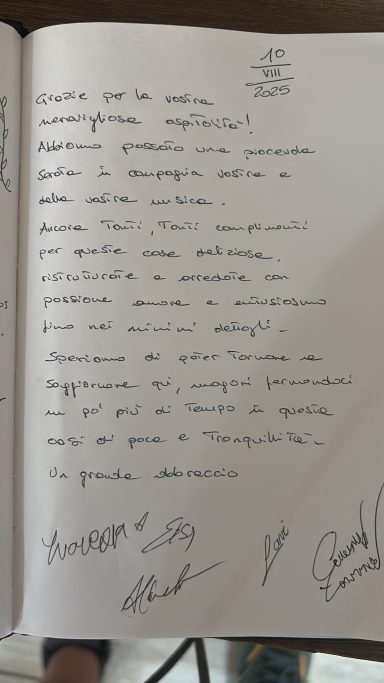 10
VIII
2025
Grazie per la vostra
meravigliosa ospitalità!
Abbiamo passato una piacevole
serata in compagnia vostra e
della vostra musica.
Ancora Tanti, Tanti complimenti
per queste case deliziose,
ristrutturate e arredate con
passione amore e entusiasmo
fino nei minimi dettagli.
Speriamo di poter Tornare a
soggiornare qui, magari fermandoci
un po' più di Tempo in questa
oasi di pace e Tranquillità.
Un grande abbraccio